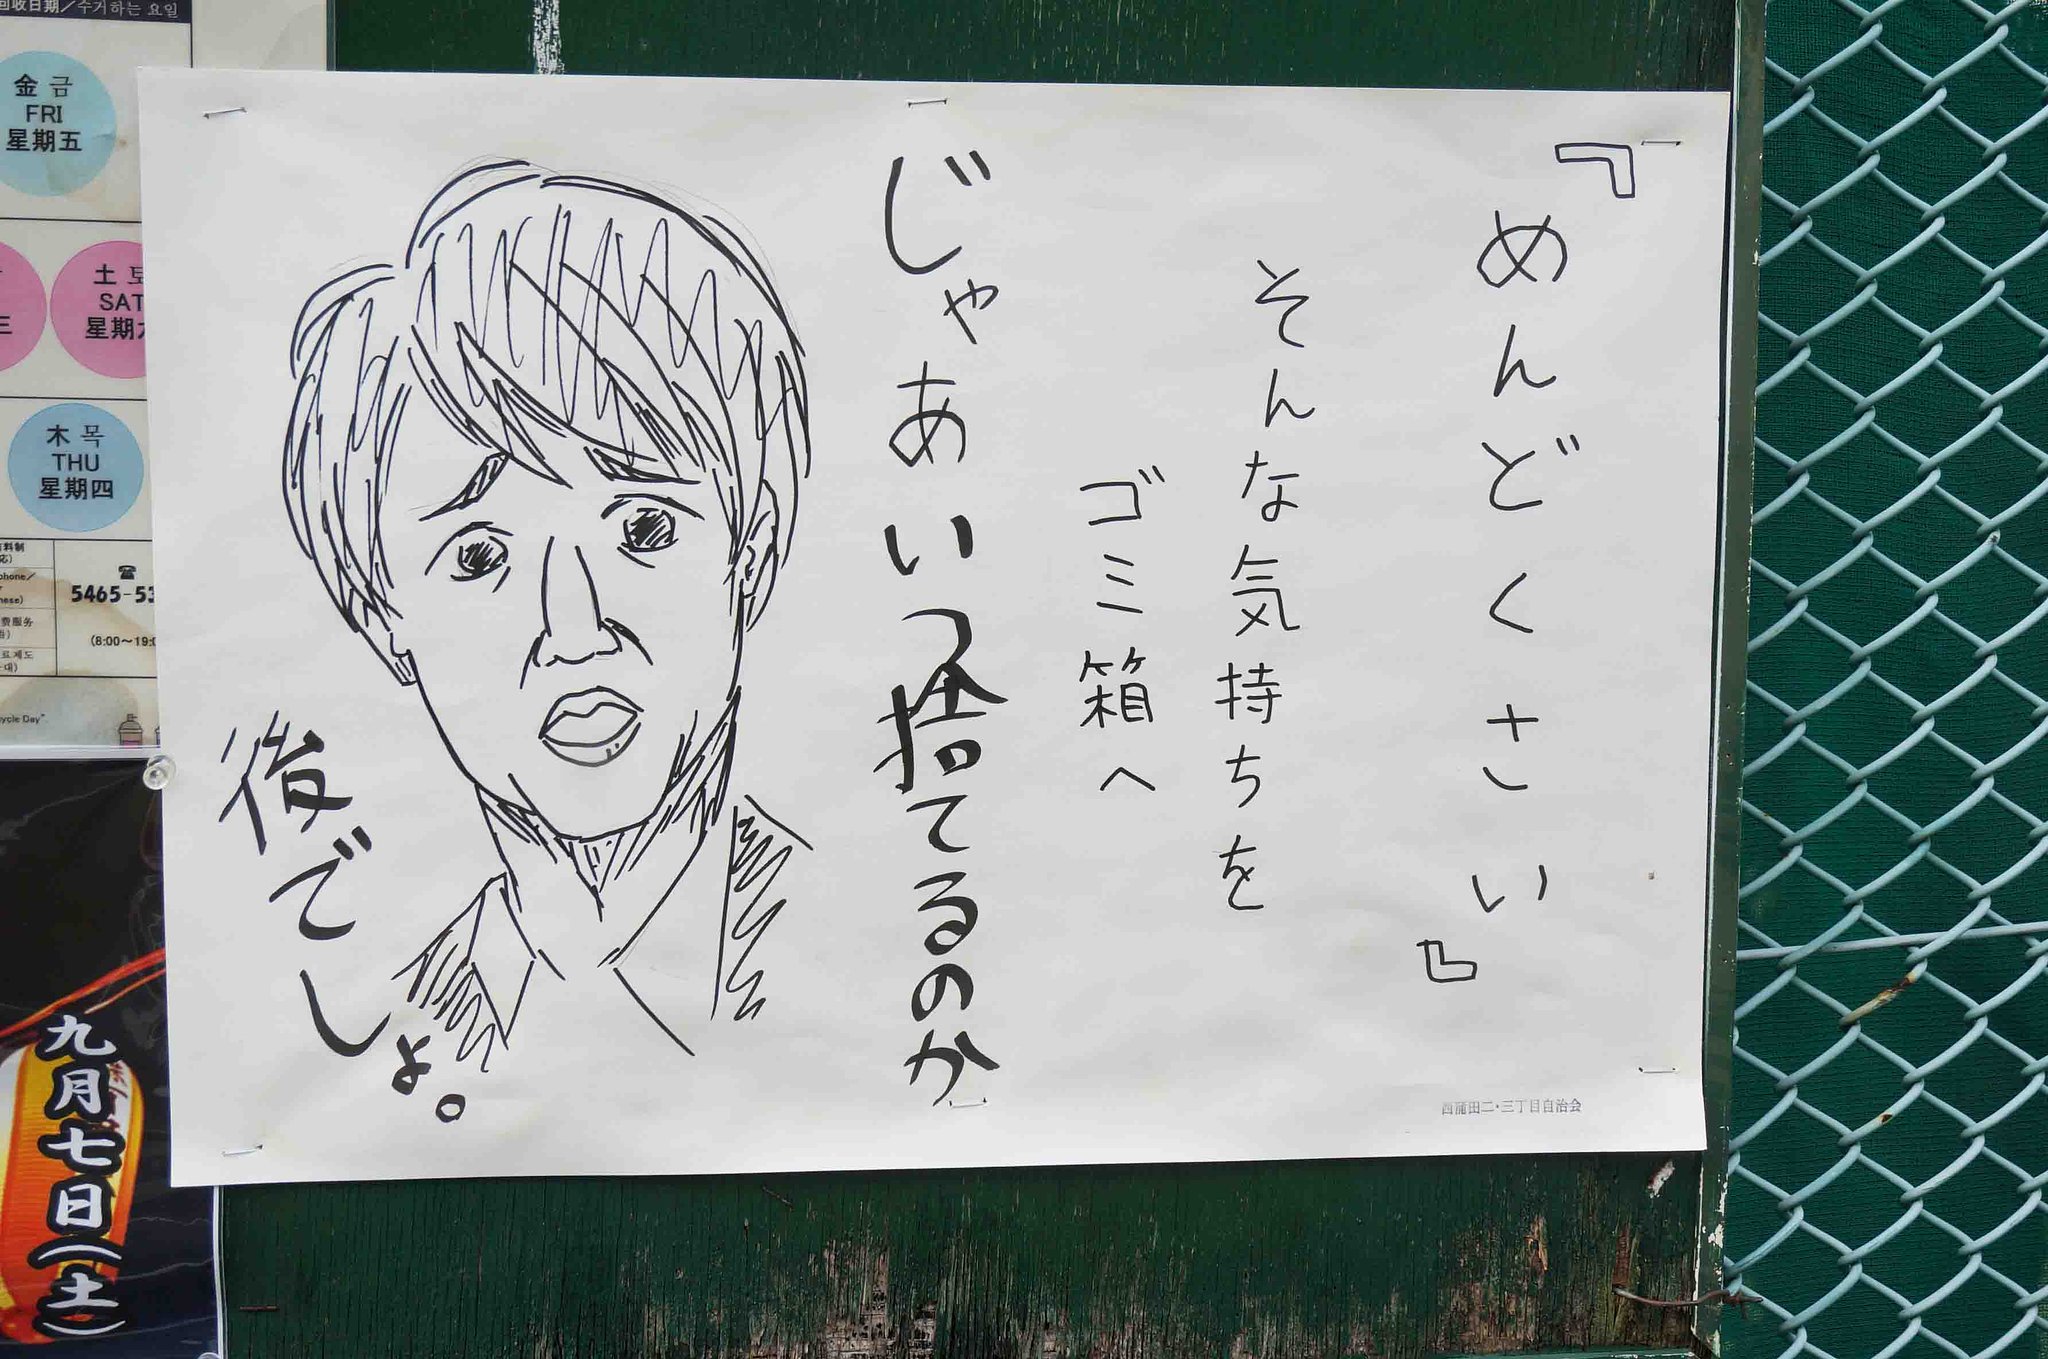 『めんどくさい』
そんな気持ちを
ゴミ箱へ
じゃあいつ捨てるのか
後でしょ。
西蒲田二・三丁目自治会
回収日期／수거하는 요일
金 금
FRI
星期五
土
SAT
星期
木 목
THU
星期四
5465-53
(8:00～19:0
九月七日(土)